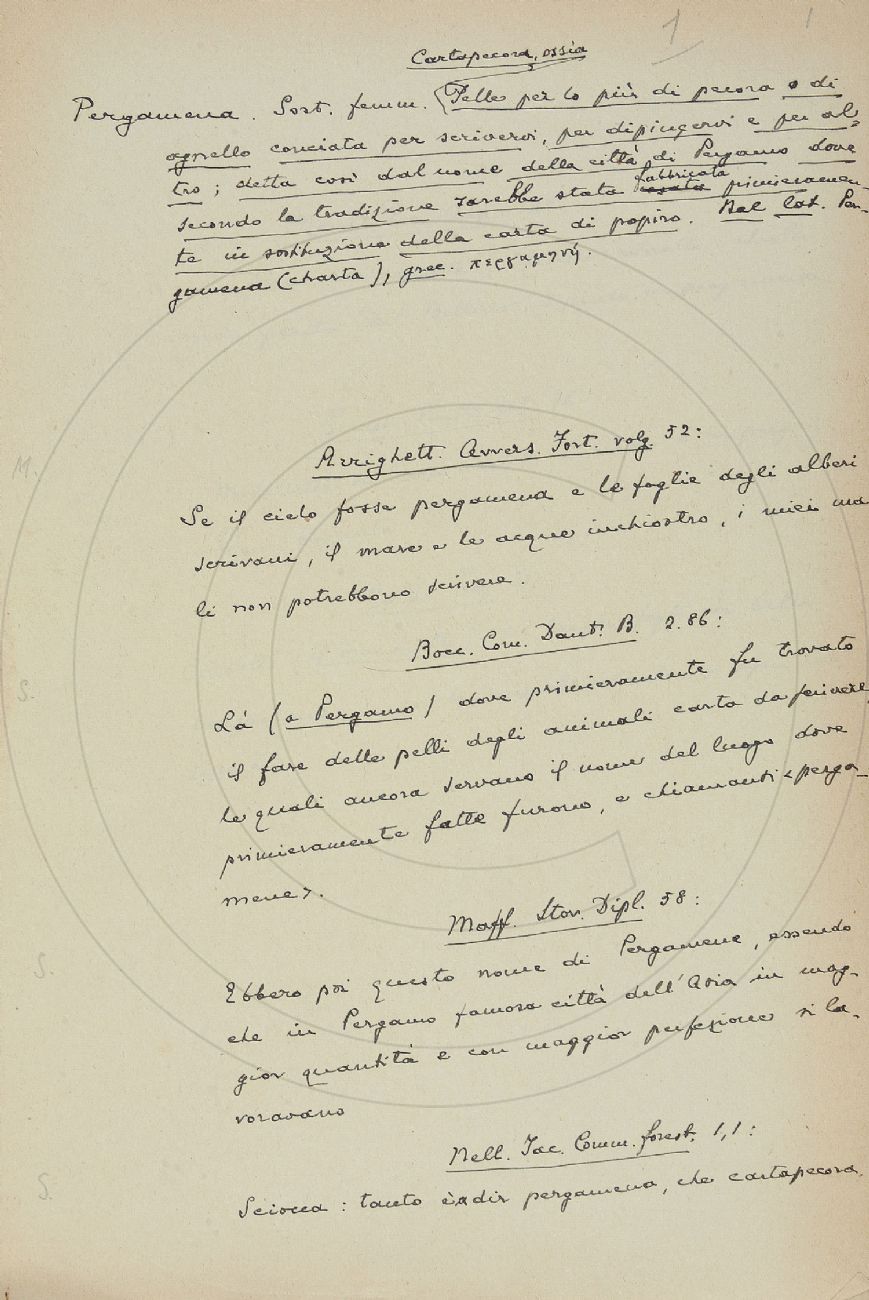 1
Cartapecora, ossia
Pergamena. Sost. femm. Pelle per lo più di pecora o di
agnello conciata per scrivervi, per dipingervi e per al=
tro; detta così dal nome della città di Pergamo dove
secondo la tradizione sarebbe stata fabbricata primieramen-
te in sostituzione della carta di papiro. Nel lat. Per-
gamena (charta), grec. περγαμηνή.
Arrighett. Avvers. Fort. volg. 52:
M.
Se il cielo fosse pergamena e le foglie degli alberi
scrivani, il mare e le acque inchiostro, i miei ma
li non potrebbono scrivere.
Bocc. Com. Dant. B. 2.86:
S.
Là (a Pergamo) dove primieramente fu trovato
il fare delle pelli degli animali carta da scrivere,
le quali ancora servano il nome del luogo dove
primieramente fatte furono, e chiamanti <perga-
mene>.
Maff. Stor. Dipl. 58:
S.
Ebbero poi questo nome di Pergamene, essendo
che in Pergamo famosa città dell'Asia in mag-
gior quantità e con maggior perfezione si la-
voravano
Nell. Iac. Comm. forest. 1,1:
S.
Sciocca: tanto è a dir pergamena, che cartapecora.